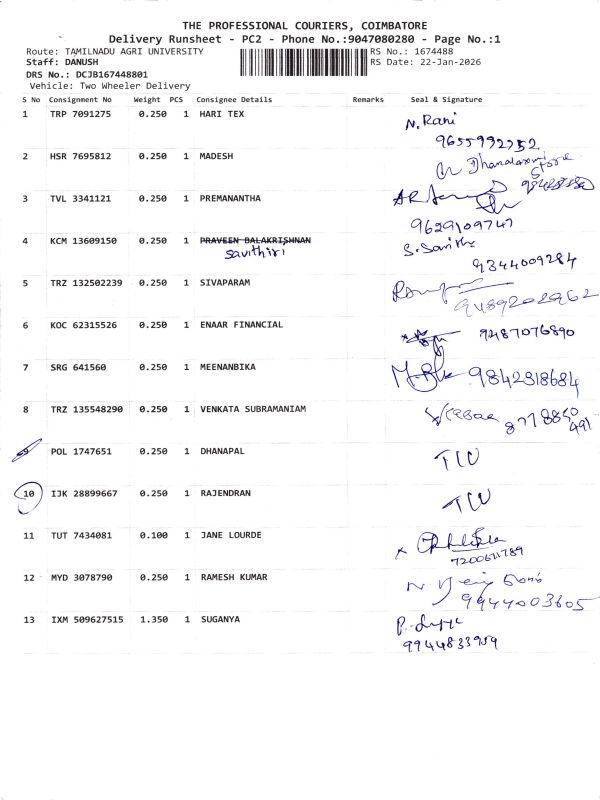 THE PROFESSIONAL COURIERS, COIMBATORE
Delivery Runsheet - PC2 - Phone No.:9047080280 - Page No.:1
Route: TAMILNADU AGRI UNIVERSITY RS No.: 1674488
Staff: DANUSH RS Date: 22-Jan-2026
DRS No.: DCJB167448801
Vehicle: Two Wheeler Delivery
S No Consignment No Weight PCS Consignee Details Remarks Seal & Signature
1 TRP 7091275 0.250 1 HARI TEX N. Rani
9655992752
2 HSR 7695812 0.250 1 MADESH Dhanalaxmi Store
3 TVL 3341121 0.250 1 PREMANANTHA
9629109747
4 KCM 13609150 0.250 1 PRAVEEN BALAKRISHNAN S. Savithi
Savithiri 9344009284
5 TRZ 132502239 0.250 1 SIVAPARAM
9489202962
6 KOC 62315526 0.250 1 ENAAR FINANCIAL 9487076890
7 SRG 641560 0.250 1 MEENANBIKA 9842318684
8 TRZ 135548290 0.250 1 VENKATA SUBRAMANIAM
9 POL 1747651 0.250 1 DHANAPAL
10 IJK 28899667 0.250 1 RAJENDRAN
11 TUT 7434081 0.100 1 JANE LOURDE
12 MYD 3078790 0.250 1 RAMESH KUMAR
9944003605
13 IXM 509627515 1.350 1 SUGANYA
9944833959